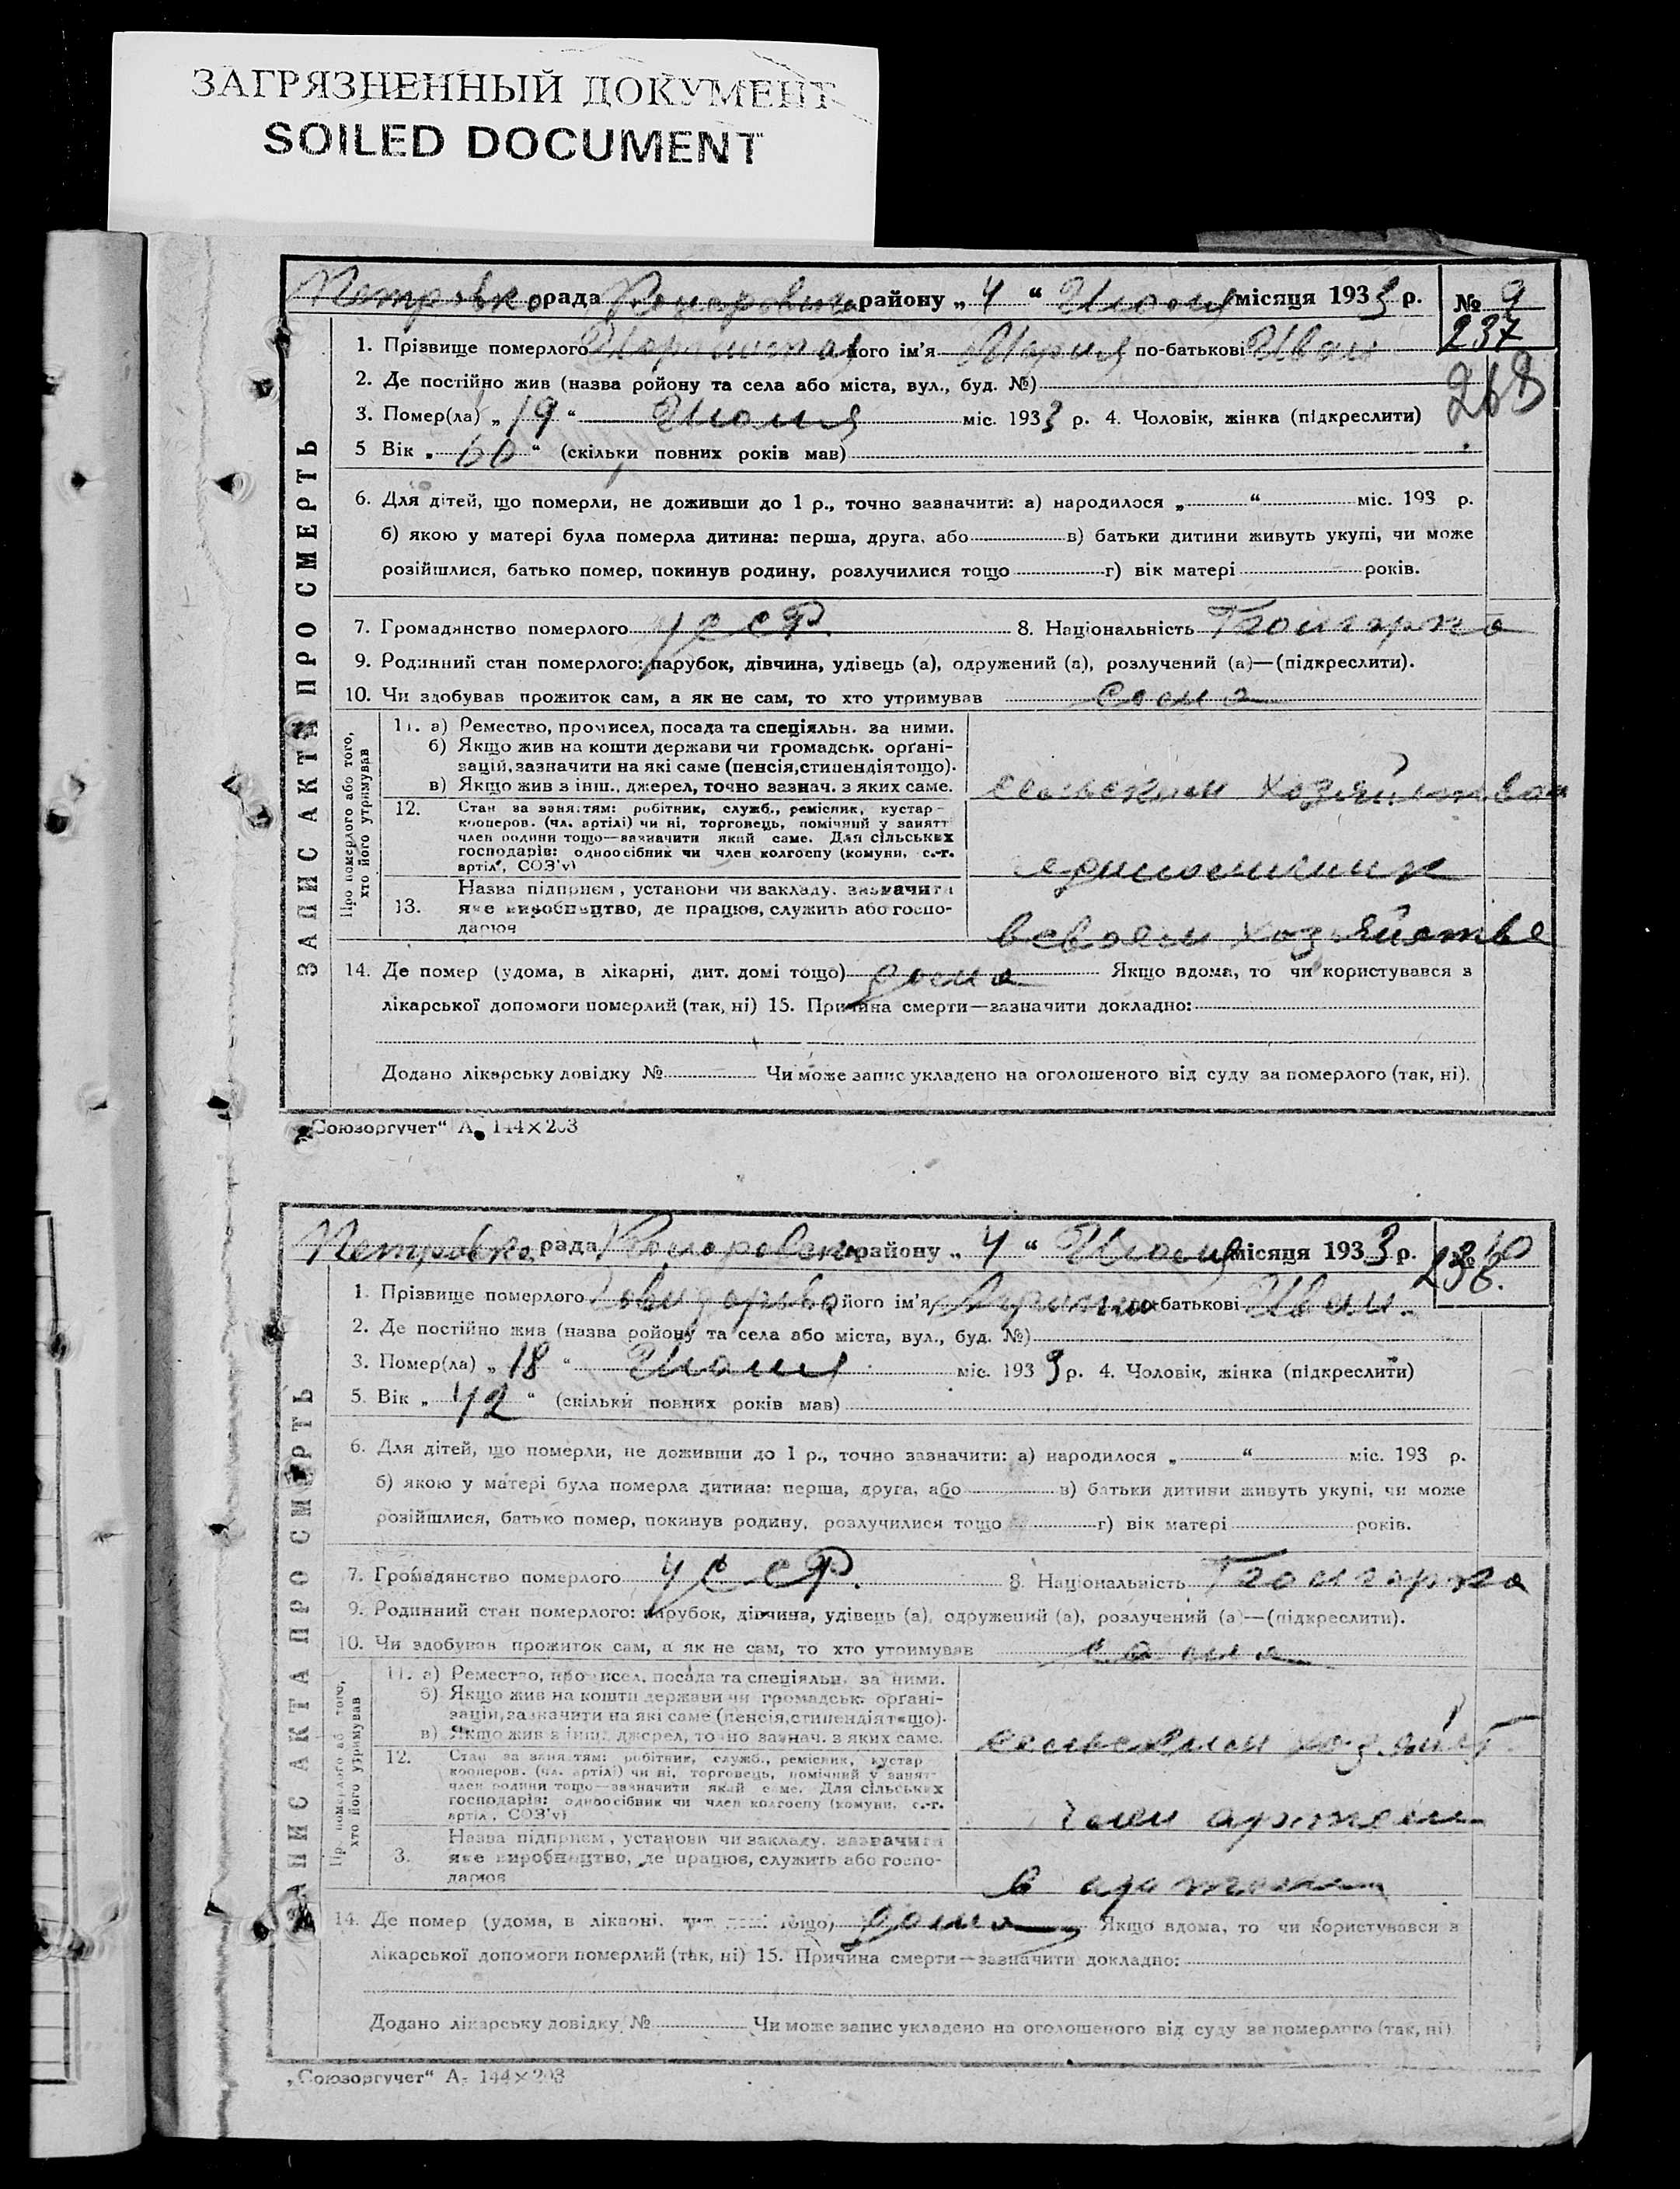 ЗАГРЯЗНЕННЫЙ ДОКУМЕНТ
SOILED DOCUMENT
Петровка рада району „ 4 “ місяця 1933 р. № 9
237
1. Прізвище померлого його ім’я Мария по-батькові Иван
2. Де постійно жив (назва ройону та села або міста, вул., буд. №)
268
3. Помер(ла) „ 19 “ міс. 1933 р. 4. Чоловік, жінка (підкреслити)
5 Вік „ 60 “ (скільки повних років мав)
6. Для дітей, що померли, не доживши до 1 р., точно зазначити: а) народилося „ “ міс. 193 р.
б) якою у матері була померла дитина: перша, друга, або в) батьки дитини живуть укупі, чи може
розійшлися, батько помер, покинув родину, розлучилися тощо г) вік матері років.
7. Громадянство померлого УССР. 8. Національність Болгарка
9. Родинний стан померлого: парубок, дівчина, удівець (а), одружений (а), розлучений (а)—(підкреслити).
10. Чи здобував прожиток сам, а як не сам, то хто утримував сама
ЗАПИС АКТА ПРО СМЕРТЬ
Про померлого або того, хто його утримував
11. а) Ремество, промисел, посада та спеціяльн. за ними.
б) Якщо жив на кошти держави чи громадськ. орґані-
зацій, зазначити на які саме (пенсія, стипендія тощо).
в) Якщо жив з інш., джерел, точно зазнач. з яких саме.
сельским хозяйством
12. Стан за занятям: робітник, служб., ремісник, кустар-
кооперов. (чл. артілі) чи ні, торговець, помічний у занятт
член родини тощо—зазначити який саме. Для сільських
господарів: одноосібник чи член колгоспу (комуни, с.-г.
артіл', СОЗ'у)
единоличник
Назва підприєм, установи чи закладу. зазначити
13. яке виробництво, де працює, служить або госпо-
дарює
в своем хозяйстве
14. Де помер (удома, в лікарні, дит. домі тощо) дома Якщо вдома, то чи користувався з
лікарської допомоги померлий (так, ні) 15. Причина смерти—зазначити докладно:
Додано лікарську довідку № Чи може запис укладено на оголошеного від суду за померлого (так, ні).
„Союзоргучет“ А. 144×203
Петровка рада району „ 4 “ місяця 1933 р. № 10
238.
1. Прізвище померлого його ім’я по-батькові Иван.
2. Де постійно жив (назва ройону та села або міста, вул., буд. №)
3. Помер(ла) „ 18 “ міс. 1933 р. 4. Чоловік, жінка (підкреслити)
5. Вік „ 42 “ (скільки повних років мав)
6. Для дітей, що померли, не доживши до 1 р., точно зазначити: а) народилося „ “ міс. 193 р.
б) якою у матері була померла дитина: перша, друга, або в) батьки дитини живуть укупі, чи може
розійшлися, батько помер, покинув родину, розлучилися тощо г) вік матері років.
7. Громадянство померлого УССР. 8. Національність Болгарка
9. Родинний стан померлого: парубок, дівчина, удівець (а), одружений (а), розлучений (а)—(підкреслити).
10. Чи здобував прожиток сам, а як не сам, то хто утримував сама
ЗАПИС АКТА ПРО СМЕРТЬ
Про померлого або того, хто його утримував
11. а) Ремество, промисел, посада та спеціяльн. за ними.
б) Якщо жив на кошти держави чи громадськ. орґані-
зацій, зазначити на які саме (пенсія, стипендія тощо).
в) Якщо жив з інш. джерел, точно зазнач. з яких саме.
сельским хозяйст
12. Стан за занятям: робітник, служб., ремісник, кустар
кооперов. (чл. артілі) чи ні, торговець, помічний у занят-
член родини тощо—зазначити який саме. Для сільських
господарів: одноосібник чи член колгоспу (комуни, с.-г.
артіл, СОЗ'у)
член артели
Назва підприєм, установи чи закладу. зазначити
3. яке виробництво, де працює, служить або госпо-
дарює
в артели
14. Де помер (удома, в лікарні, дит. домі тощо) дома Якщо вдома, то чи користувався з
лікарської допомоги померлий (так, ні) 15. Причина смерти—зазначити докладно:
Додано лікарську довідку № Чи може запис укладено на оголошеного від суду за померлого (так, ні)
„Союзоргучет“ А- 144×203